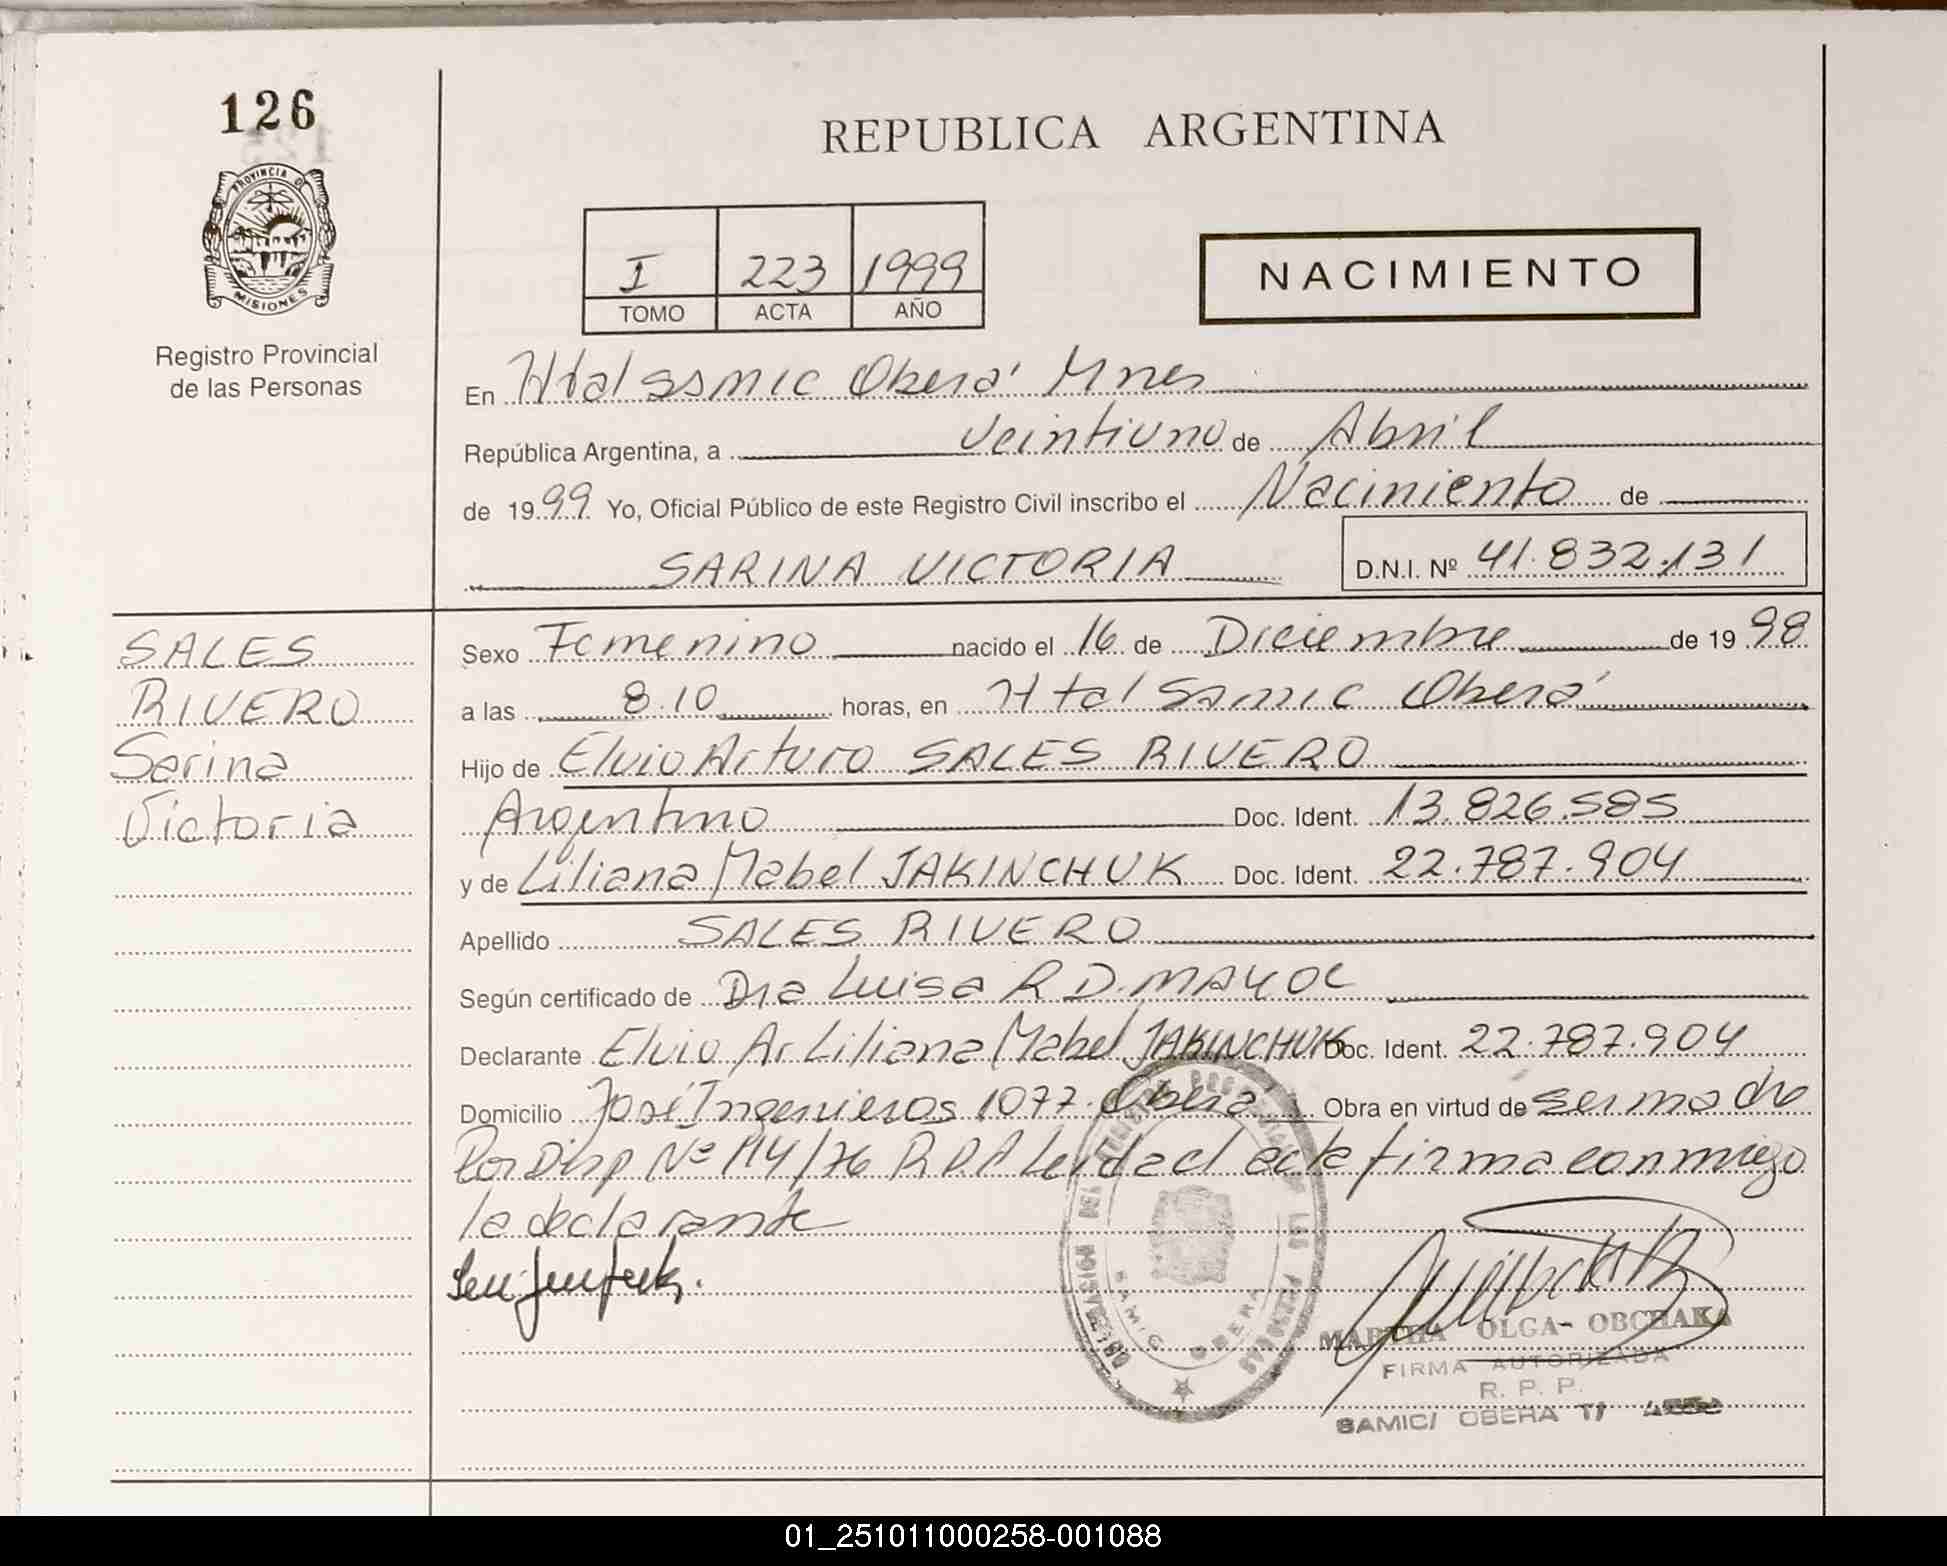 126
REPUBLICA ARGENTINA
PROVINCIA D
MISIONES
Registro Provincial
de las Personas
I 223 1999
TOMO ACTA AÑO
NACIMIENTO
En Htal ssmic Oberá Mnes
República Argentina, a veintiuno de Abril
de 1999 Yo, Oficial Público de este Registro Civil inscribo el Nacimiento de
SARINA VICTORIA D.N.I. Nº 41.832.131
SALES
RIVERO
Sarina
Victoria
Sexo Femenino nacido el 16 de Diciembre de 1998
a las 8.10 horas, en Htal Samic Oberá
Hijo de Elvio Arturo SALES RIVERO
Argentino Doc. Ident. 13.826.585
y de Liliana Mabel JAKINCHUK Doc. Ident. 22.787.904
Apellido SALES RIVERO
Según certificado de Dra Luisa R D. MAYOL
Declarante Elvio Ar Liliana Mabel JAKINCHUK Doc. Ident. 22.787.904
Domicilio José Ingenieros 1077. Oberá Obra en virtud de ser madre
Por Disp Nº 114/76 R.P.P. Leida el acta firma conmigo
la declarante
SAMIC OBERA
MARTHA OLGA- OBCHAKA
FIRMA AUTORIZADA
R. P. P.
SAMIC/ OBERA
01_251011000258-001088